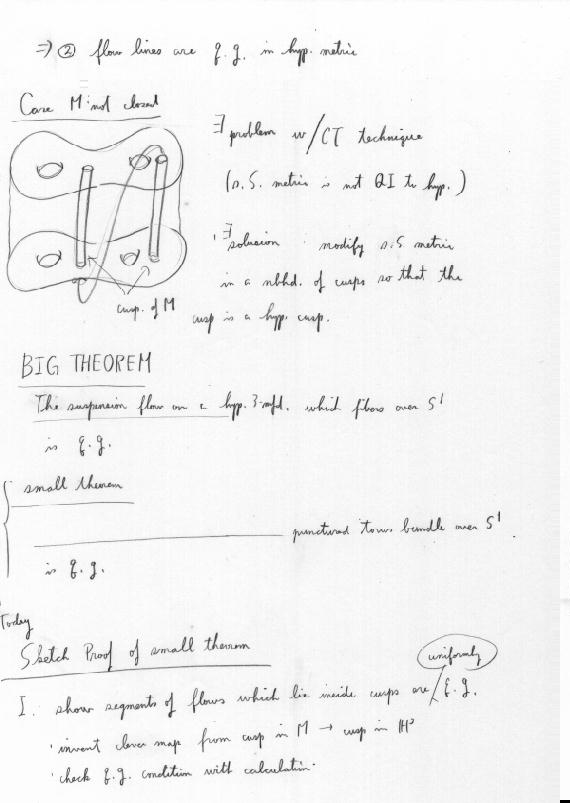 ⇒ ② flow lines are q.g. in hyp. metric
Case M not closed
∃ problem w/CT technique
(s.S. metric is not QI to hyp.)
∃ solution modify s.S metric
in a nbhd. of cusps so that the
cusp is a hyp. cusp.
cusp. of M
BIG THEOREM
The suspension flow on a hyp. 3-mfd. which fibers over S¹
is q.g.
small theorem
punctured torus bundle over S¹.
is q.g.
Today
Sketch Proof of small theorem
uniformly
I. show segments of flows which lie inside cusps are / q.g.
· invent clever map from cusp in M → cusp in H³
· check q.g. condition with calculation.